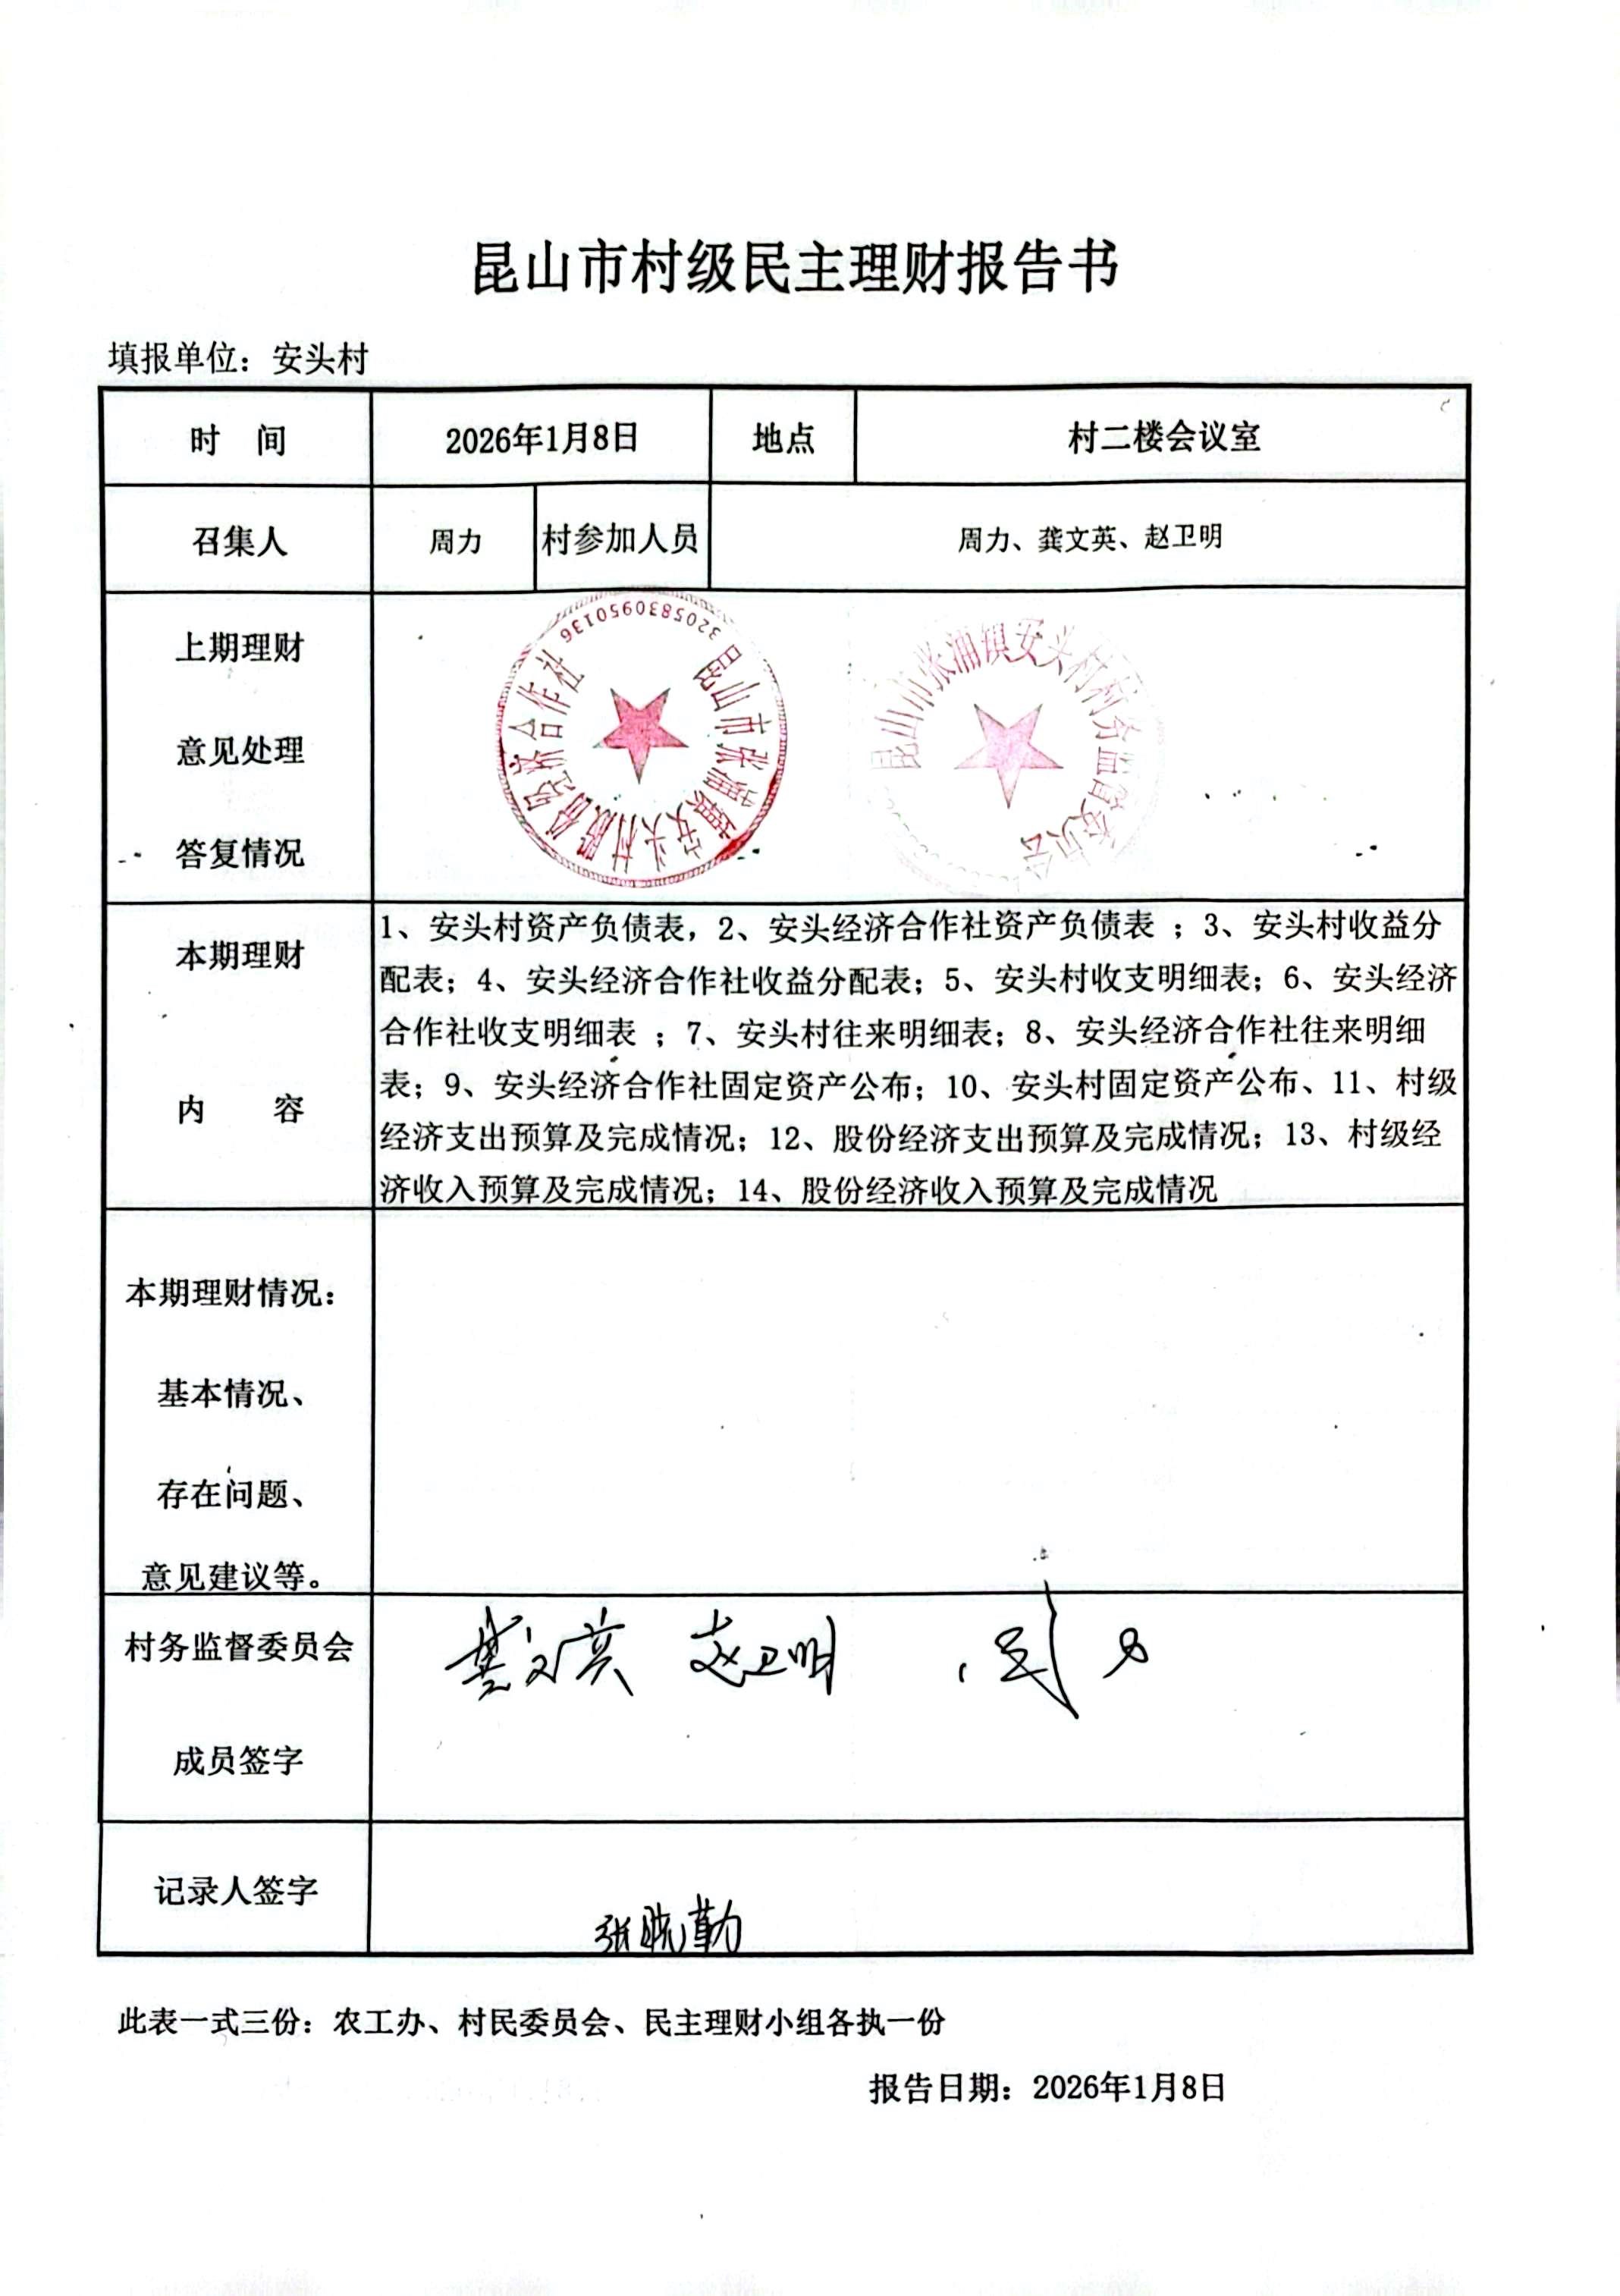 昆山市村级民主理财报告书
填报单位：安头村
时 间 2026年1月8日 地点 村二楼会议室
召集人 周力 村参加人员 周力、龚文英、赵卫明
上期理财
意见处理
答复情况
昆山市张浦镇安头村股份经济合作社
3205830950136
昆山市张浦镇安头村村务监督委员会
本期理财
内 容
1、安头村资产负债表，2、安头经济合作社资产负债表 ；3、安头村收益分
配表；4、安头经济合作社收益分配表；5、安头村收支明细表；6、安头经济
合作社收支明细表 ；7、安头村往来明细表；8、安头经济合作社往来明细
表；9、安头经济合作社固定资产公布；10、安头村固定资产公布、11、村级
经济支出预算及完成情况；12、股份经济支出预算及完成情况；13、村级经
济收入预算及完成情况；14、股份经济收入预算及完成情况
本期理财情况：
基本情况、
存在问题、
意见建议等。
村务监督委员会
成员签字
龚文英 赵卫明 周力
记录人签字
张晓勤
此表一式三份：农工办、村民委员会、民主理财小组各执一份
报告日期：2026年1月8日